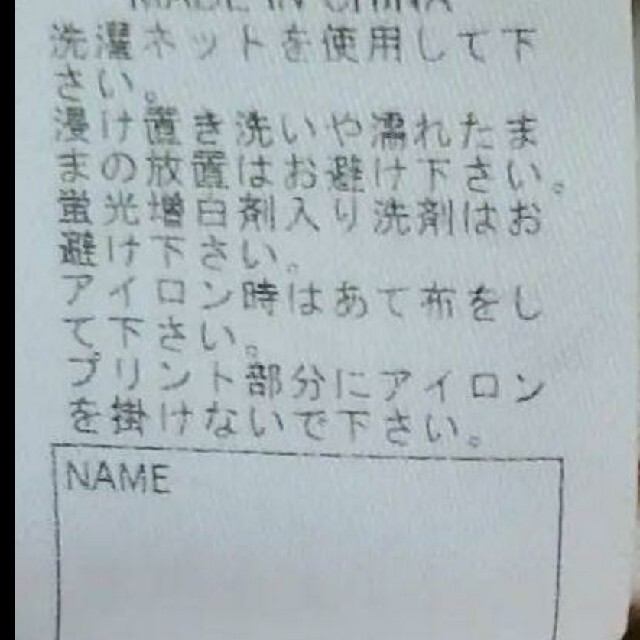 MADE IN CHINA
洗濯ネットを使用して下
さい。
浸け置き洗いや濡れたま
まの放置はお避け下さい。
蛍光増白剤入り洗剤はお
避け下さい。
アイロン時はあて布をし
て下さい。
プリント部分にアイロン
を掛けないで下さい。
NAME